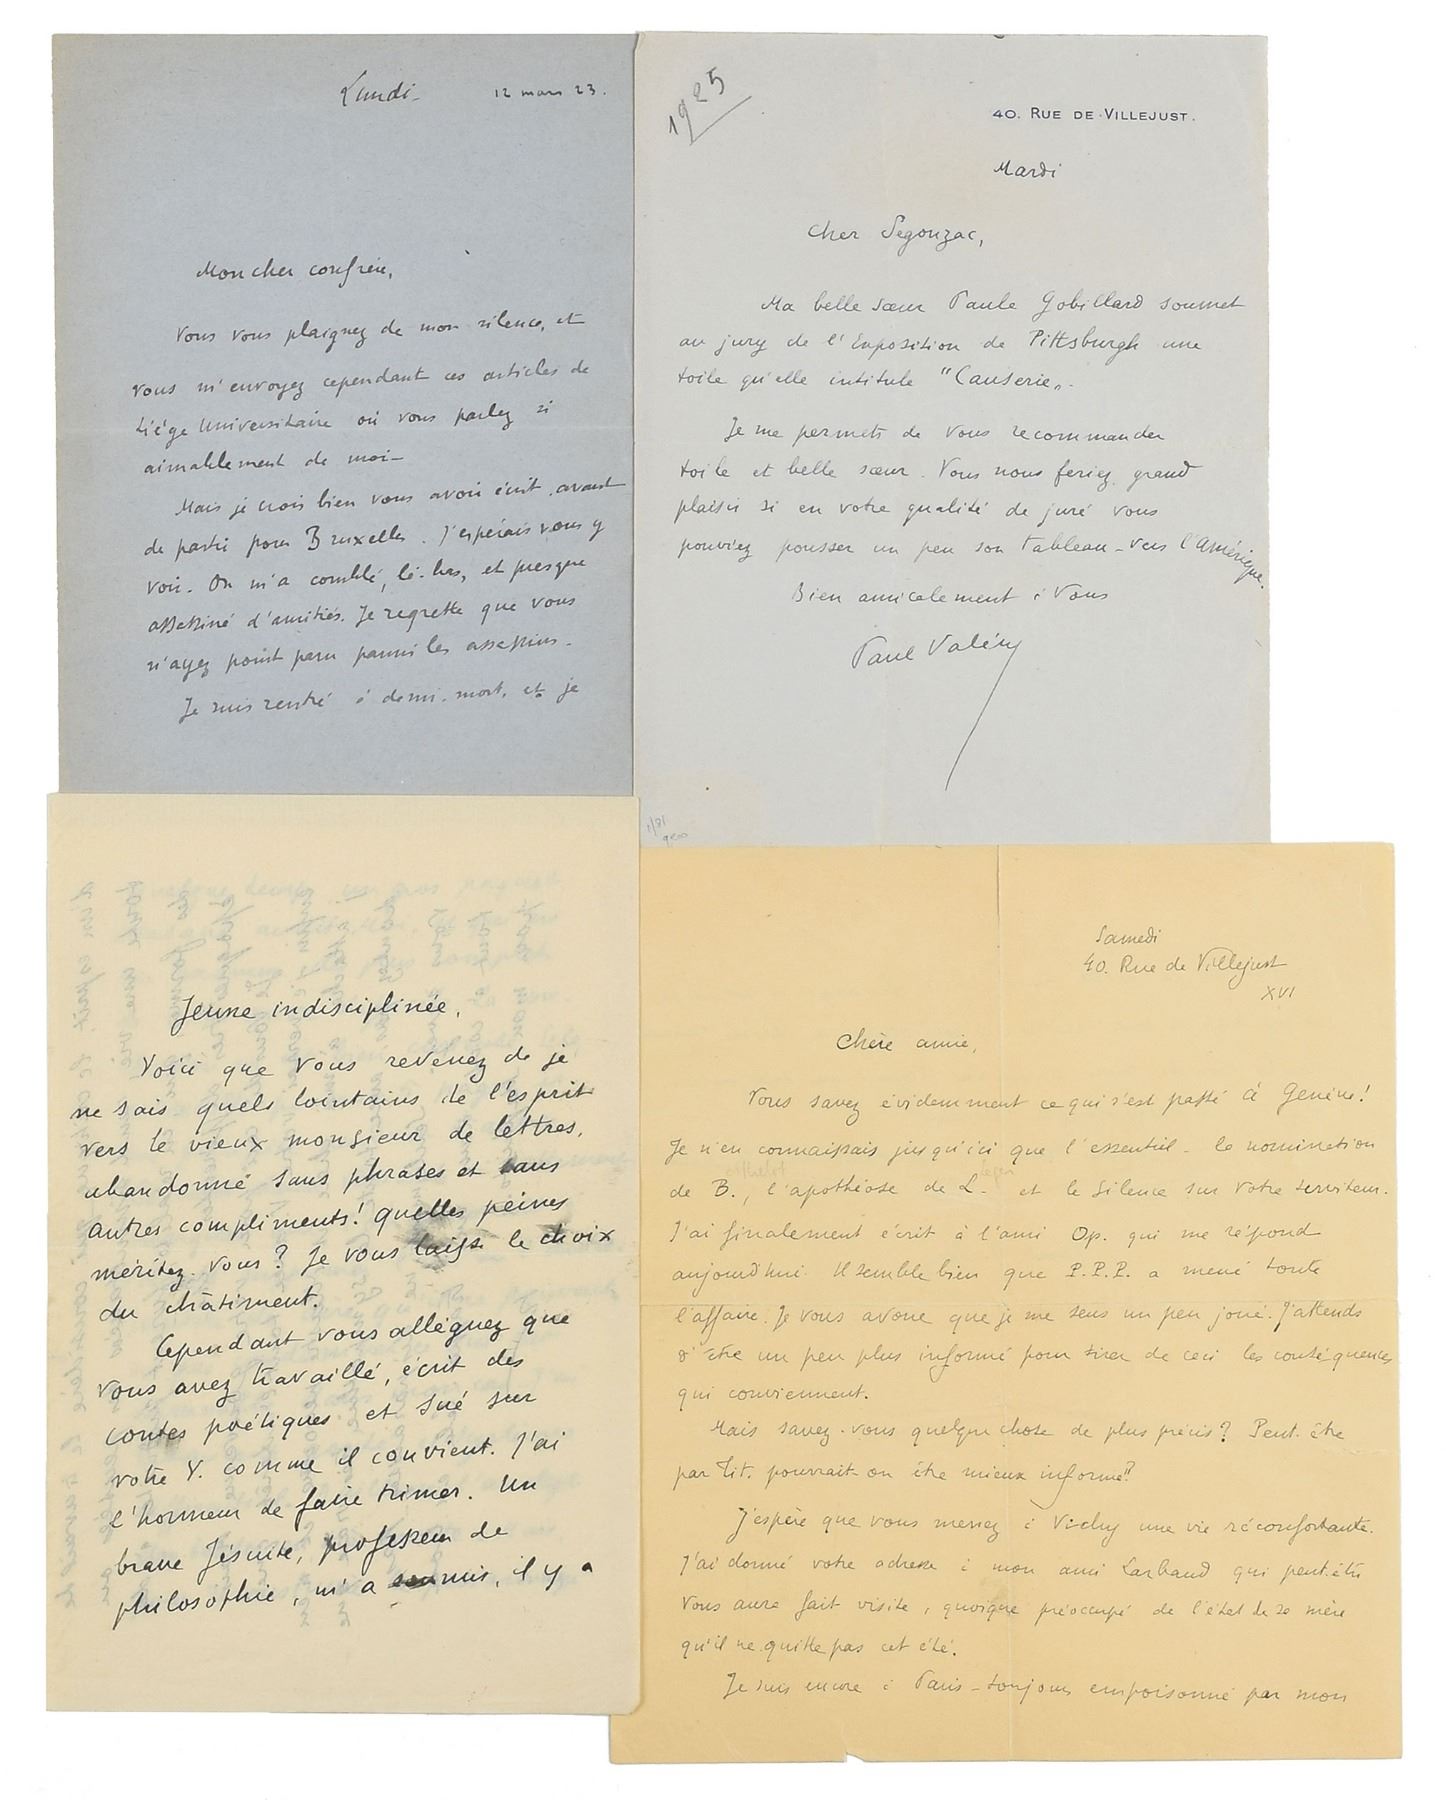 Lundi- 12 mars 23.
Mon cher confrère,
Vous vous plaignez de mon silence, et
vous m'envoyez cependant ces articles de
Liége Universitaire où vous parlez si
aimablement de moi-
Mais je crois bien vous avoir écrit, avant
de partir pour Bruxelles. J'espérais vous y
voir. On m'a comblé, là-bas, et presque
assassiné d'amitiés. Je regrette que vous
n'ayez point paru parmi les assassins.
Je suis rentré à demi-mort, et je
1925
40. RUE DE VILLEJUST.
Mardi
Cher Segonzac,
Ma belle sœur Paule Gobillard soumet
au jury de l'Exposition de Pittsburgh une
toile qu'elle intitule "Causerie".
Je me permets de vous recommander
toile et belle sœur. Vous nous feriez grand
plaisir si en votre qualité de juré vous
pouviez pousser un peu son tableau-vers l'Amérique.
Bien amicalement à vous
Paul Valéry
Jeune indisciplinée,
Voici que vous revenez de je
ne sais quels lointains de l'esprit
vers le vieux monsieur de lettres,
abandonné sans phrases et sans
autres compliments! Quelles peines
méritez-vous? Je vous laisse le choix
du châtiment.
Cependant vous alléguez que
vous avez travaillé, écrit des
contes poétiques et sué sur
votre V. comme il convient. J'ai
l'honneur de faire trimer. Un
brave Jésuite, professeur de
philosophie, m'a soumis, il y a
Samedi
40. Rue de Villejust
XVI
Chère amie,
Vous savez évidemment ce qui s'est passé à Genève!
Je n'en connaissais jusqu'ici que l'essentiel- la nomination
de B., l'apothéose de L.- et le silence sur votre serviteur.
J'ai finalement écrit à l'ami Op. qui me répond
aujourd'hui. Il semble bien que P.P.P. a mené toute
l'affaire. Je vous avoue que je me sens un peu joué. J'attends
d'être un peu plus informé pour tirer de ceci les conséquences
qui conviennent.
Mais savez-vous quelque chose de plus précis? Peut-être
par Tit. pourrait-on être mieux informé?
J'espère que vous menez à Vichy une vie réconfortante.
J'ai donné votre adresse à mon ami Larbaud qui peut-être
vous aura fait visite, quoique préoccupé de l'état de sa mère
qu'il ne quitte pas cet été.
Je suis encore à Paris-toujours empoisonné par mon